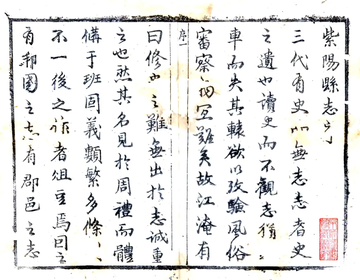 紫陽縣志序
三代有史而無志志者史
之遺也讀史而不觀志猶
車而失其轅欲以攷驗風俗
審察冝難矣故江淹有
序一
曰修史之難無出於志誠重
之也然其名見於周禮而體
備于班固義類繁多條
不一後之作者俎豆焉因之
有邦國之志有郡邑之志